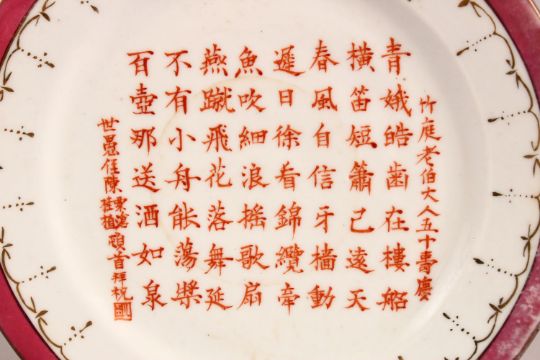 竹庭老伯大人五十壽慶
青娥皓齒在樓船
橫笛短簫已遠天
春風自信牙檣動
遲日徐看錦纜牽
魚吹細浪搖歌扇
燕蹴飛花落舞延
不有小舟能蕩槳
百壺那送酒如泉
世愚侄陳頓首拜祝